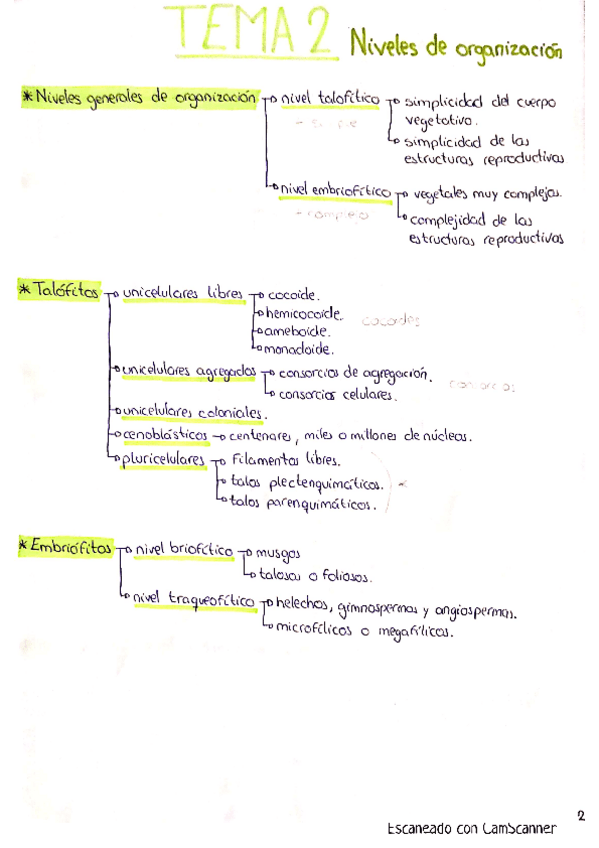 TEMA 2 Niveles de organización
* Niveles generales de organización
nivel talofítico
simplicidad del cuerpo
vegetativo.
simplicidad de las
estructuras reproductivas
nivel embriofítico
vegetales muy complejos.
- complejo
complejidad de las
estructuras reproductivas
* Talófitos
unicelulares libres
cocoide.
hemicocoide.
ameboide.
monadoide.
unicelulares agregados
consorcios de agregación.
consorcios celulares.
unicelulares coloniales.
cenoblásticos
centenares, miles o millones de núcleos.
pluricelulares
Filamentos libres.
talos plectenquimáticos.
talos parenquimáticos.
* Embriófitos
nivel briofítico
musgos
talosos o foliosos.
nivel traqueofítico
helechos, gimnospermas y angiospermas.
microfílicos o megafílicos.
2
Escaneado con CamScanner